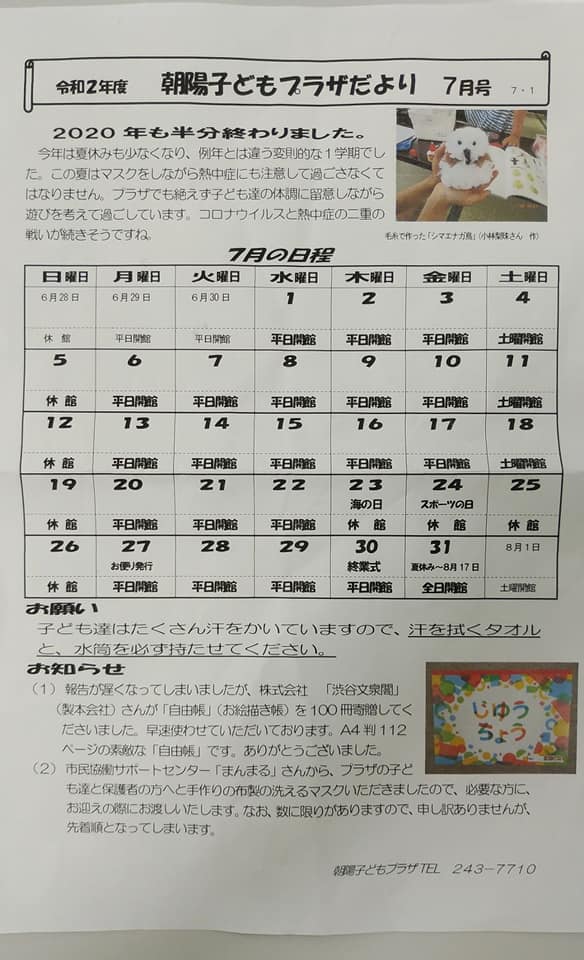 令和2年度 朝陽子どもプラザだより 7月号 7・1
2020年も半分終わりました。
今年は夏休みも少なくなり、例年とは違う変則的な1学期でし
た。この夏はマスクをしながら熱中症にも注意して過ごさなくて
はなりません。プラザでも絶えず子ども達の体調に留意しながら
遊びを考えて過ごしています。コロナウイルスと熱中症の二重の
戦いが続きそうですね。
毛糸で作った「シマエナガ鳥」(小林梨珠さん 作)
7月の日程
日曜日 月曜日 火曜日 水曜日 木曜日 金曜日 土曜日
6月28日 6月29日 6月30日 1 2 3 4
休 館 平日開館 平日開館 平日開館 平日開館 平日開館 土曜開館
5 6 7 8 9 10 11
休 館 平日開館 平日開館 平日開館 平日開館 平日開館 土曜開館
12 13 14 15 16 17 18
休 館 平日開館 平日開館 平日開館 平日開館 平日開館 土曜開館
19 20 21 22 23 24 25
海の日 スポーツの日
休 館 平日開館 平日開館 平日開館 休 館 休 館 休 館
26 27 28 29 30 31 8月1日
お便り発行 終業式 夏休み~8月17日
休 館 平日開館 平日開館 平日開館 平日開館 全日開館 土曜開館
お願い
子ども達はたくさん汗をかいていますので、汗を拭くタオル
と、水筒を必ず持たせてください。
お知らせ
(1) 報告が遅くなってしまいましたが、株式会社 「渋谷文泉閣」
(製本会社)さんが「自由帳」(お絵描き帳)を100冊寄贈してく
ださいました。早速使わせていただいております。A4判112
ページの素敵な「自由帳」です。ありがとうございました。
じゆう
ちょう
(2) 市民協働サポートセンター「まんまる」さんから、プラザの子ど
も達と保護者の方へと手作りの布製の洗えるマスクいただきましたので、必要な方に、
お迎えの際にお渡しいたします。なお、数に限りがありますので、申し訳ありませんが、
先着順となってしまいます。
朝陽子どもプラザTEL 243-7710